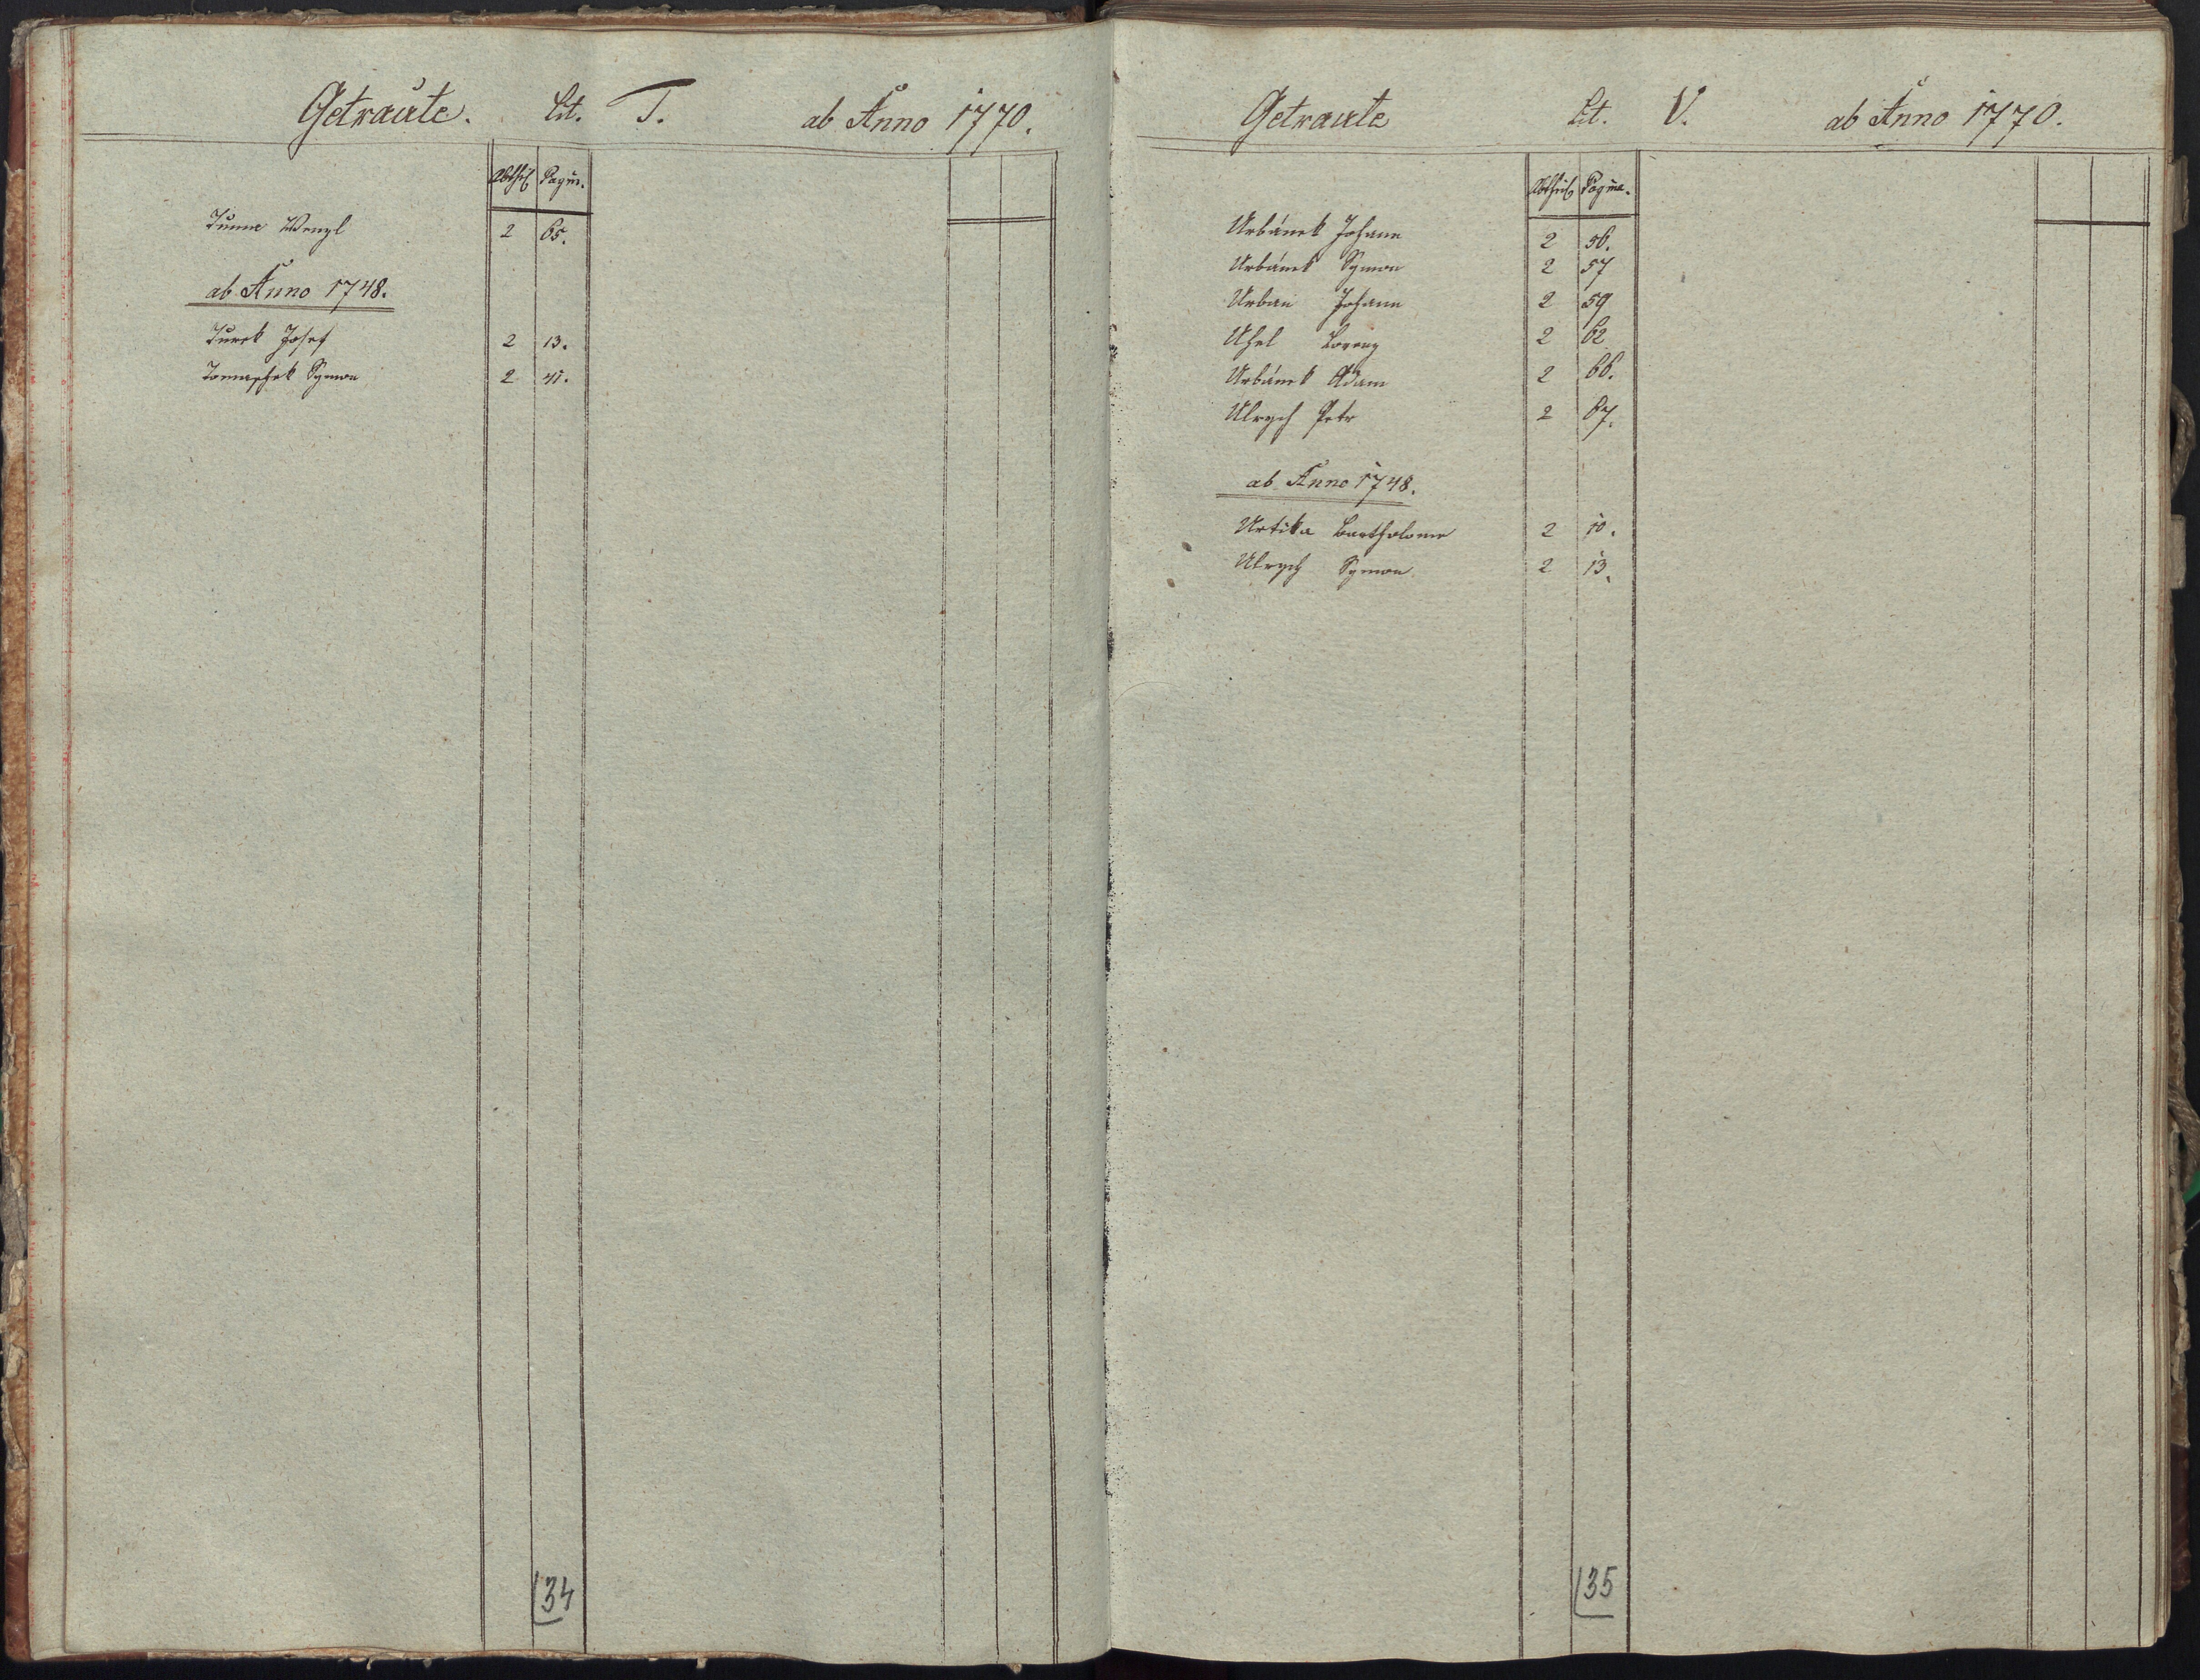 Getraute. Lit. T. ab Anno 1770.
Abtheil Pagin.
Tuma Wenzl 2 65.
ab Anno 1748.
Turek Josef 2 13.
Tomaschek Symon 2 41.
34
Getraute Lit. V. ab Anno 1770.
Abtheil Pagina.
Urbánek Johann 2 56.
Urbánek Symon 2 57
Urban Johann 2 59
Uhel Lorenz 2 62
Urbánek Adam 2 66.
Ulrych Petr 2 67.
ab Anno 1748.
Urtika Bartholome 2 10.
Ulrych Symon 2 13.
35